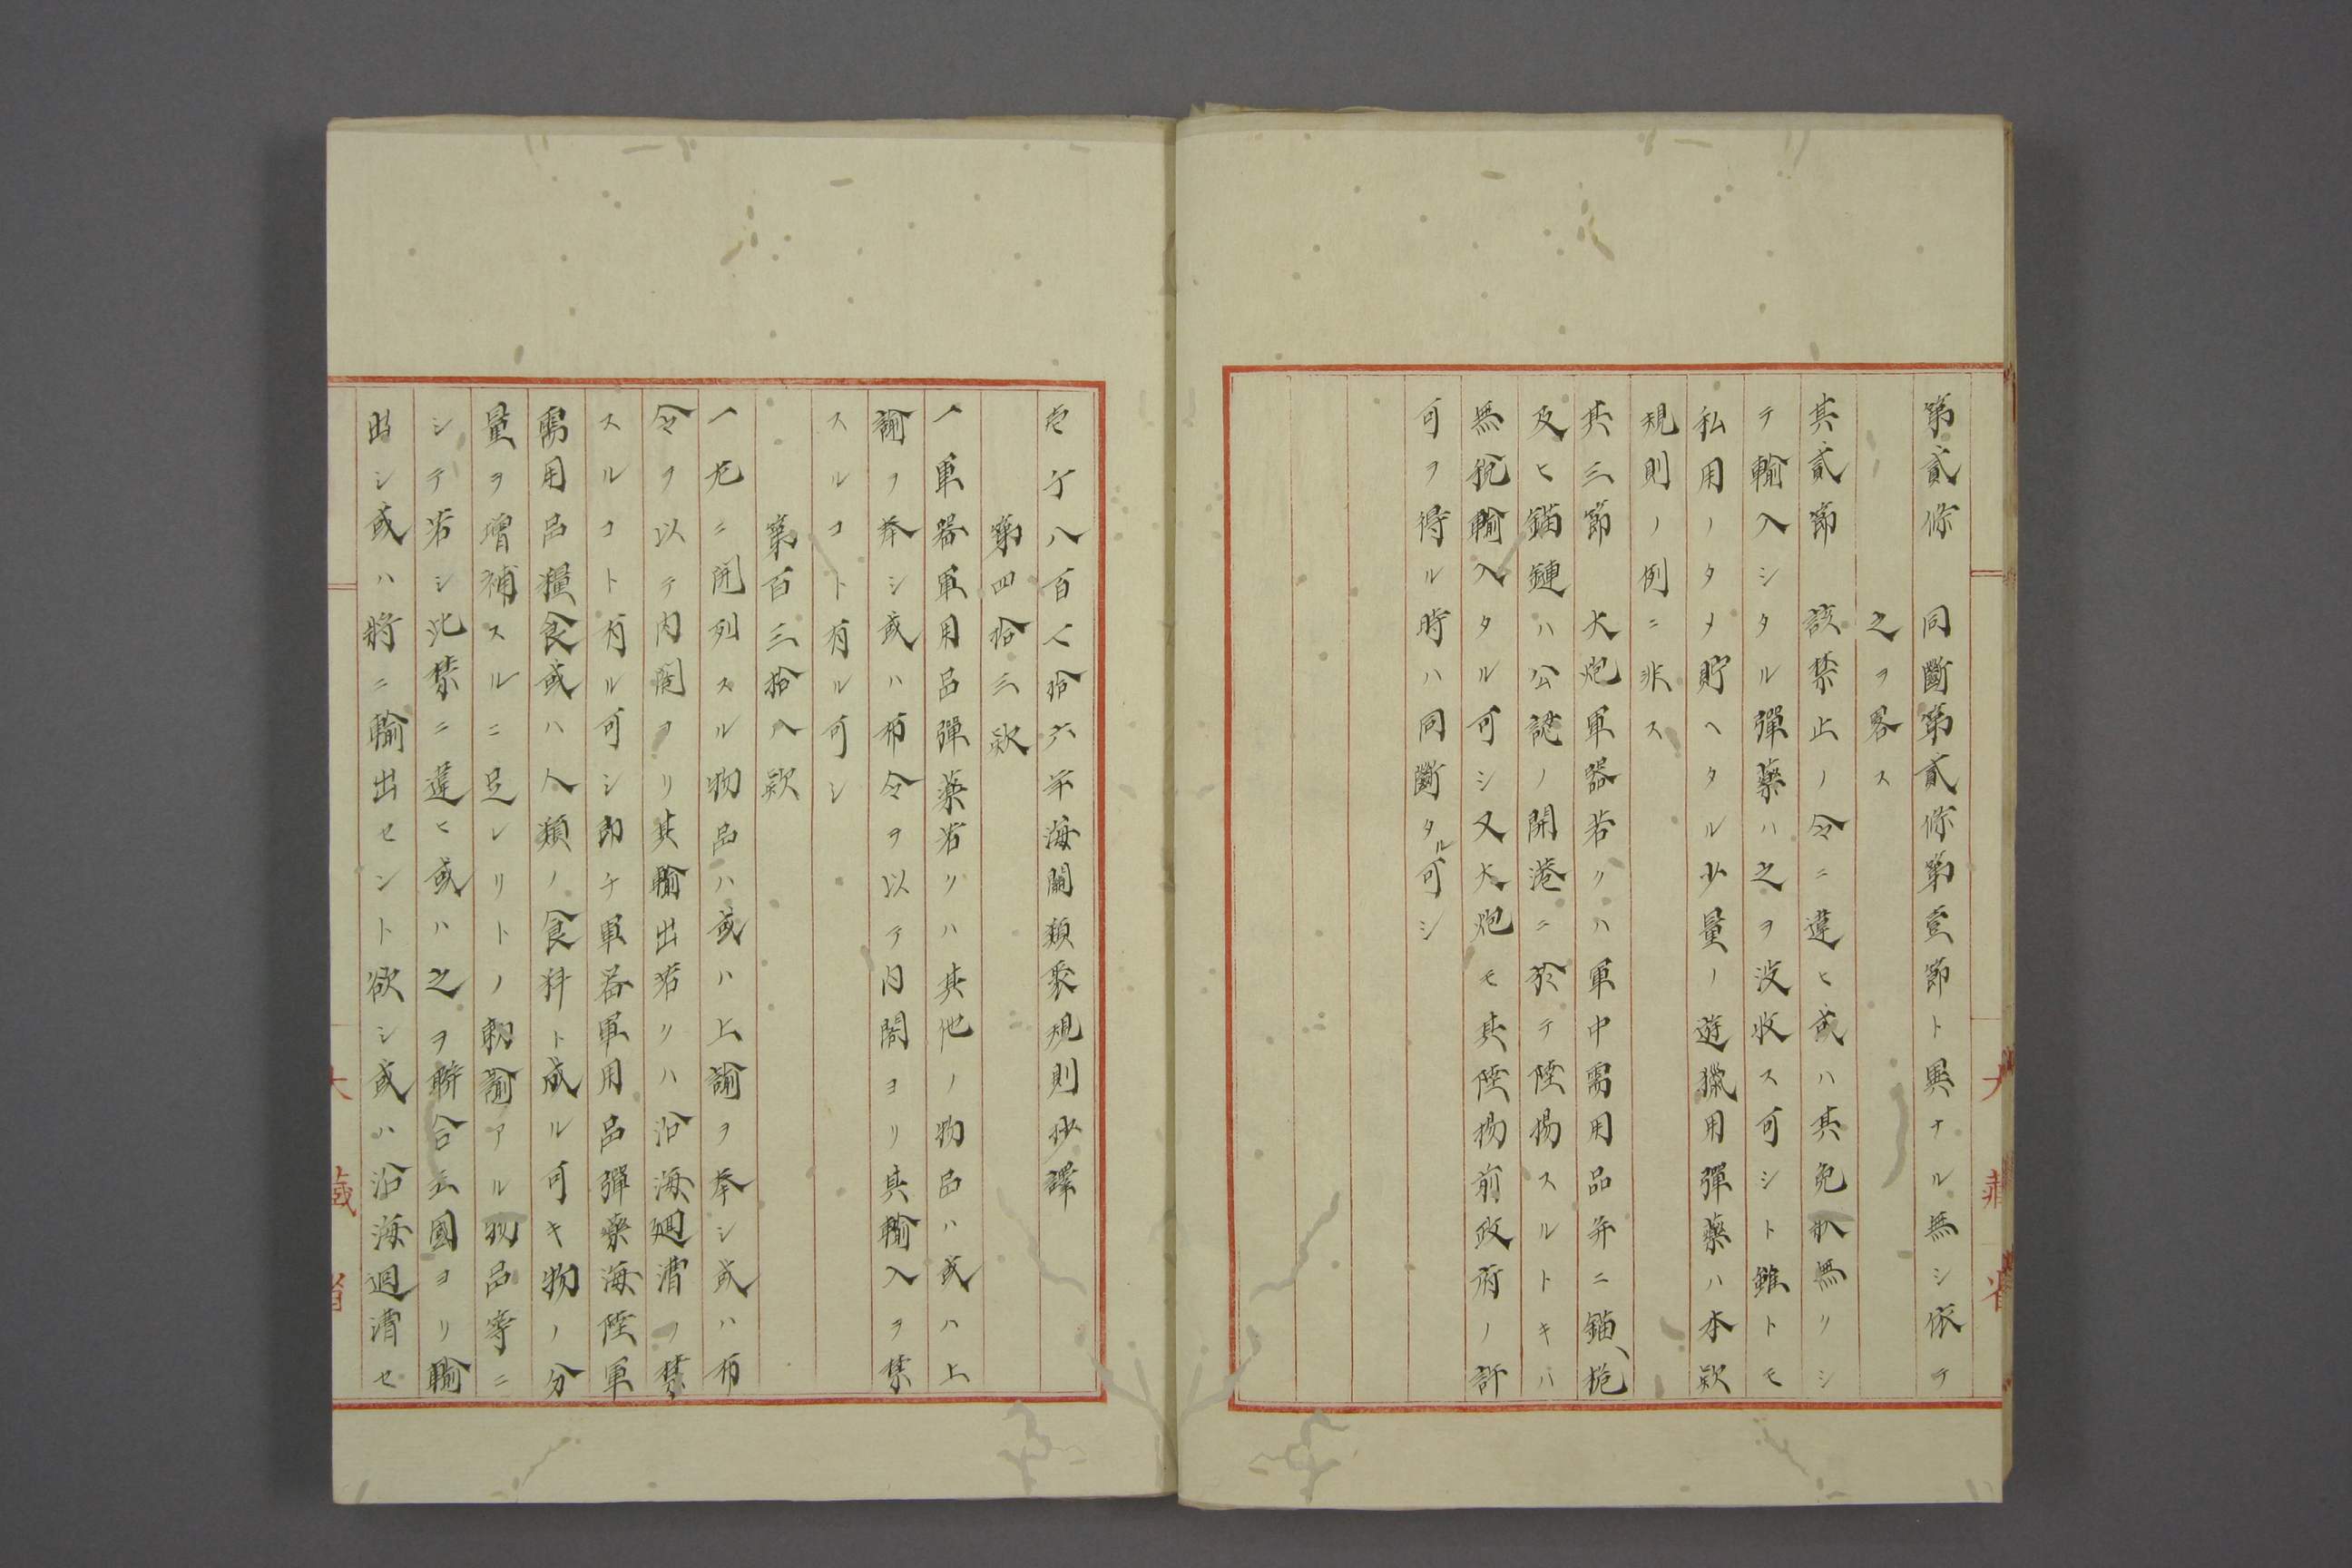 第貳條　同斷第貳條第壹節ト異ナル無シ依テ
之ヲ畧ス
其貳節　該禁止ノ令ニ違ヒ或ハ其免狀無クシ
テ輸入シタル彈藥ハ之ヲ沒收ス可シト雖トモ
私用ノタメ貯ヘタル少量ノ遊獵用彈藥ハ本款
規則ノ例ニ非ス
其三節　大炮軍器若クハ軍中需用品并ニ錨、
及ヒ錨鏈ハ公認ノ開港ニ於テ陸揚スルトキハ
無稅輸入タル可シ又大炮モ其陸揚前政府ノ許
可ヲ得ル時ハ同斷タル可シ
大藏省
壱千八百七拾六年海關類聚規則抄譯
第四拾三款
一軍器軍用品彈藥若クハ其他ノ物品ハ或ハ上
諭ヲ奉シ或ハ布令ヲ以テ內閣ヨリ其輸入ヲ禁
スルコト有ル可シ
第百三拾八款
一左ニ開列スル物品ハ或ハ上諭ヲ奉シ或ハ布
令ヲ以テ內閣ヨリ其輸出若クハ沿海廻漕ヲ禁
スルコト有ル可シ卽チ軍器軍用品彈藥海陸軍
需用品糧食或ハ人類ノ食料ト成ル可キ物ノ分
量ヲ增補スルニ足レリトノ勅諭アル物品等ニ
シテ若シ此禁ニ違ヒ或ハ之ヲ聯合王國ヨリ輸
出シ或ハ將ニ輸出セント欲シ或ハ沿海迴漕セ
大藏省